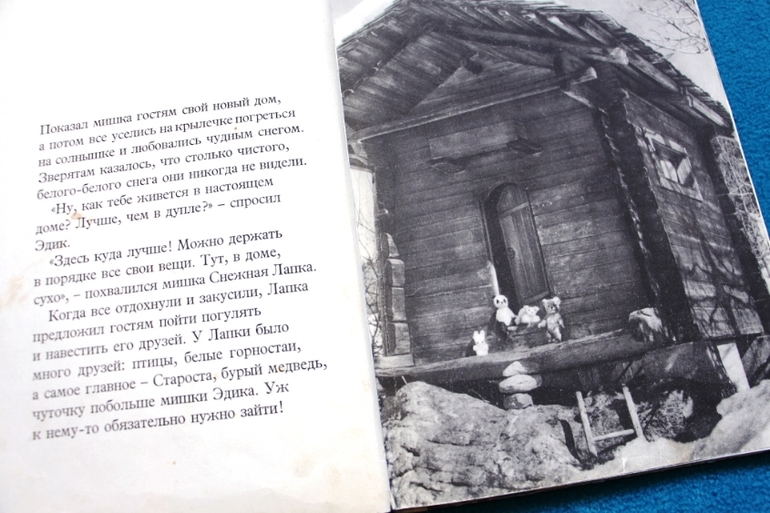 Показал мишка гостям свой новый дом,
а потом все уселись на крылечке погреться
на солнышке и любовались чудным снегом.
Зверятам казалось, что столько чистого,
белого-белого снега они никогда не видели.
«Ну, как тебе живется в настоящем
доме? Лучше, чем в дупле?» – спросил
Эдик.
«Здесь куда лучше! Можно держать
в порядке все свои вещи. Тут, в доме,
сухо», – похвалился мишка Снежная Лапка.
Когда все отдохнули и закусили, Лапка
предложил гостям пойти погулять
и навестить его друзей. У Лапки было
много друзей: птицы, белые горностаи,
а самое главное – Староста, бурый медведь,
чуточку побольше мишки Эдика. Уж
к нему-то обязательно нужно зайти!